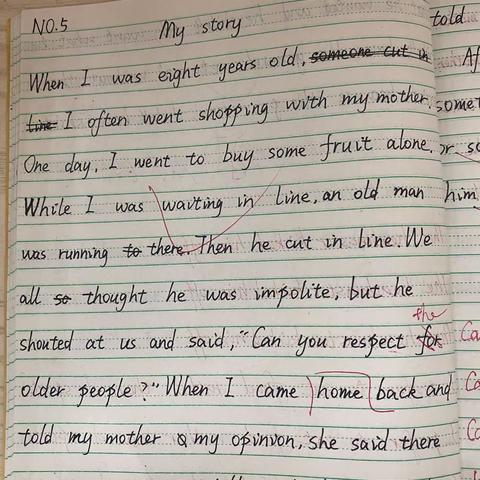 NO.5 My story
When I was eight years old, someone cut in
line I often went shopping with my mother.
One day, I went to buy some fruit alone.
While I was waiting in line, an old man
was running to there. Then he cut in line. We
all so thought he was impolite, but he
the
shouted at us and said, "Can you respect for
older people?" When I came home back and
told my mother my opinvon, she said there
told
him
Ca